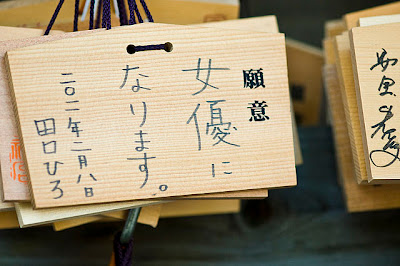 願意
女優に
なります。
二〇一一年二月八日
田口ひろ